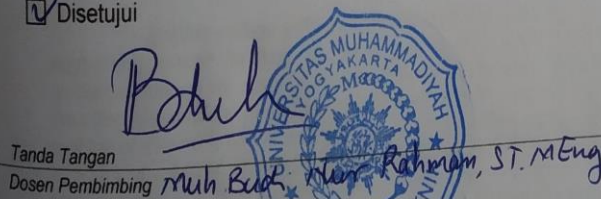 Disetujui
UNIVERSITAS MUHAMMADIYAH
YOGYAKARTA
Tanda Tangan
Dosen Pembimbing Muh Budi Nur Rahman, ST. MEng